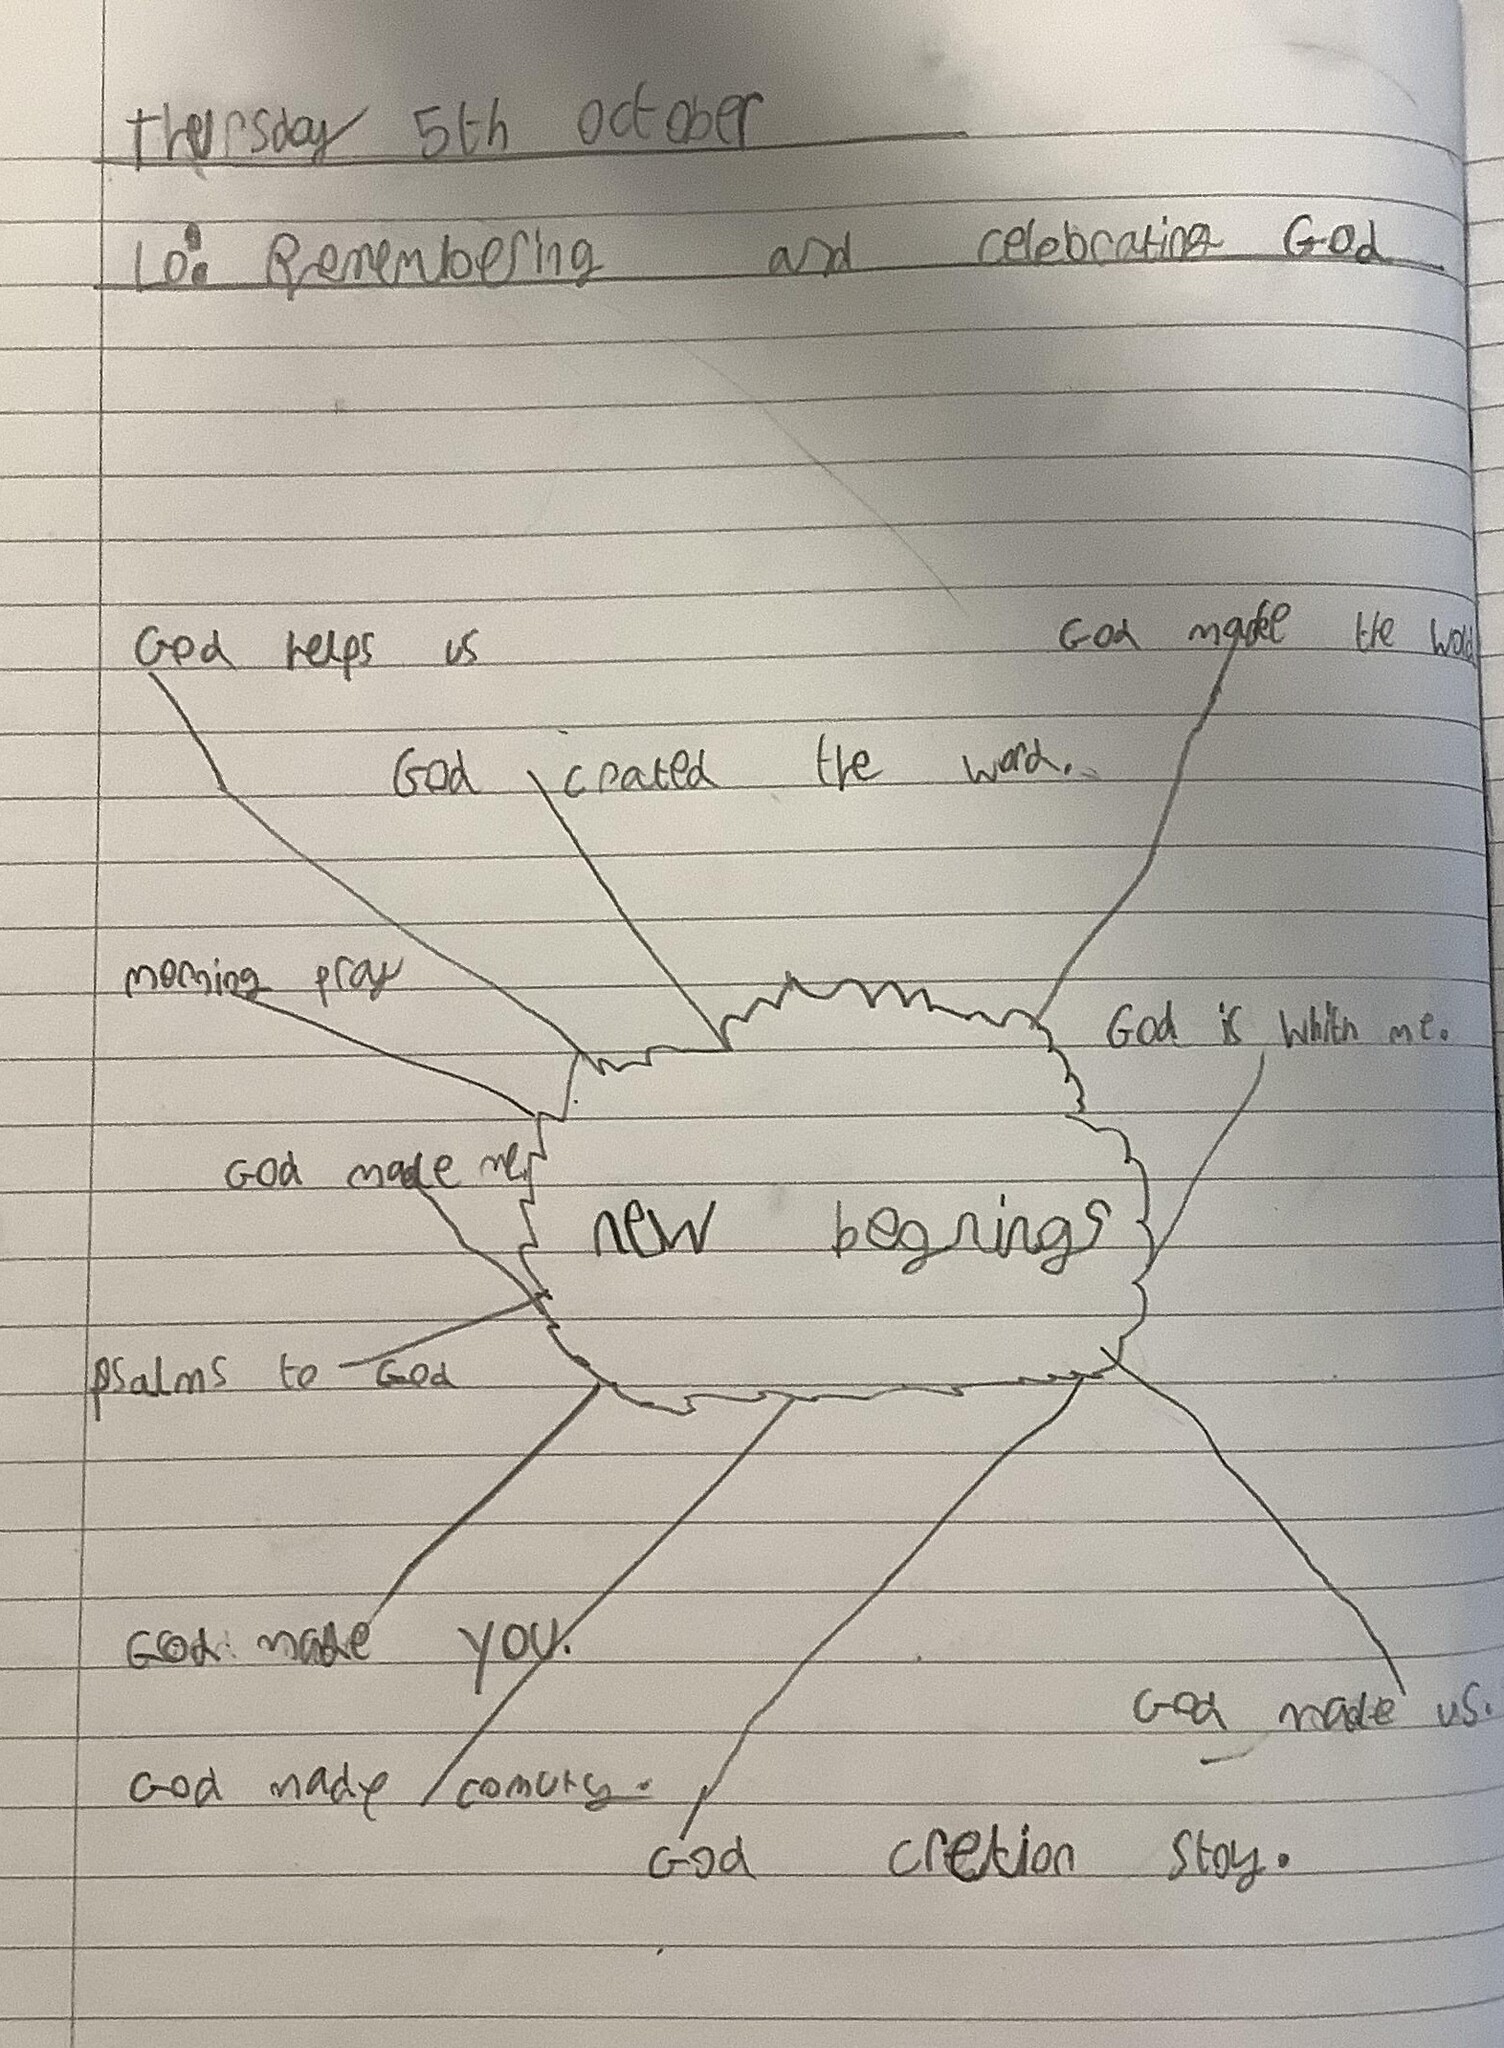 Thursday 5th October
LO: Remembering and celebrating God
God helps us
God made the
God crated the word.
morning pray
God is whith me.
God made me
new begnings
psalms to God
God made you.
God made us.
God made
God cretion stoy.